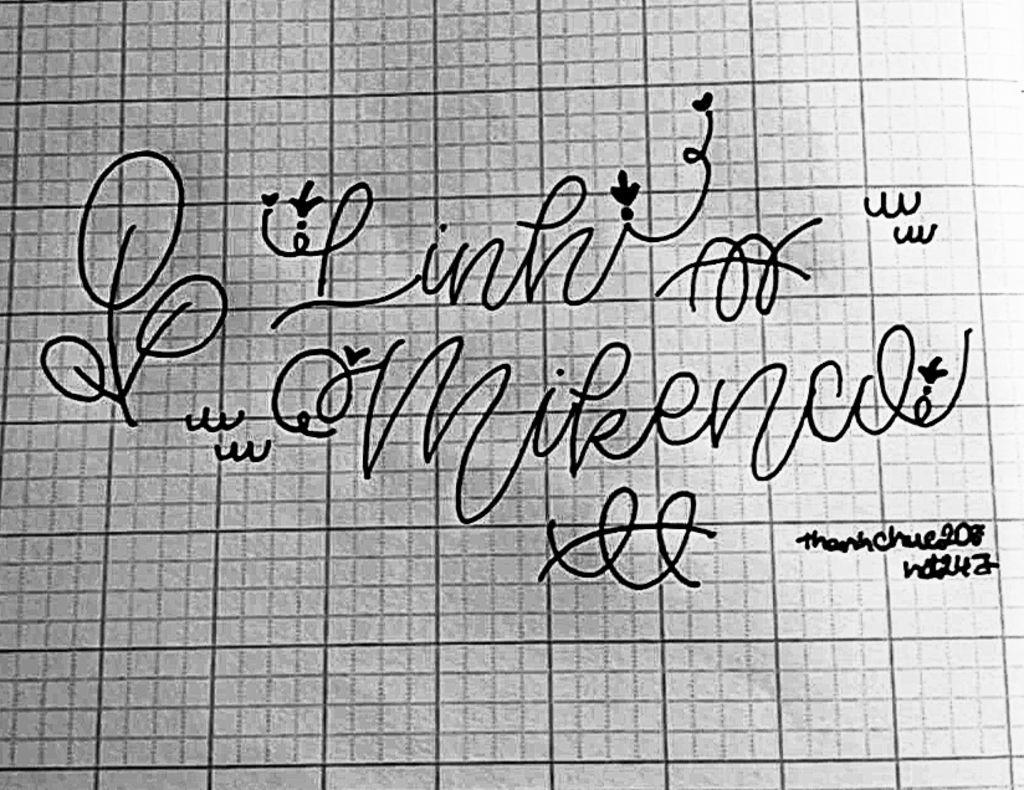 Linh
Mikenco
thanhchuc208
nct247